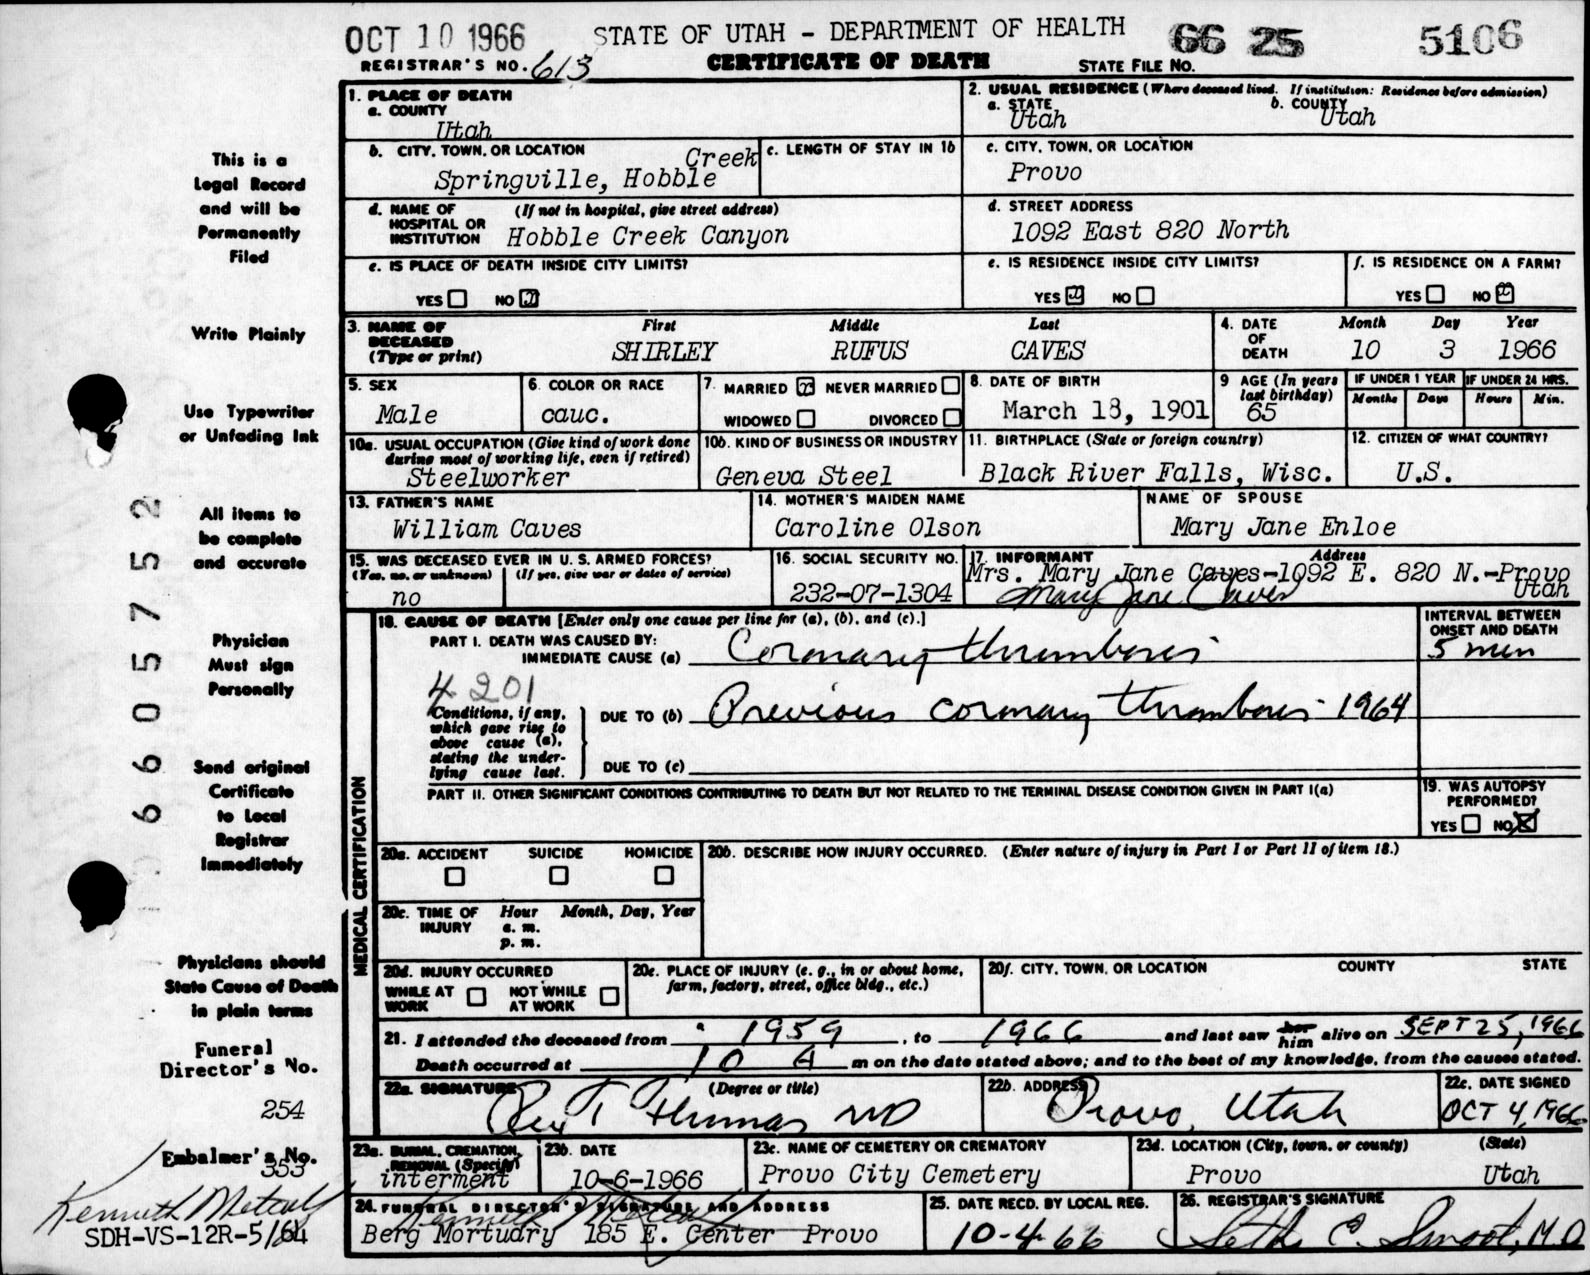 OCT 10 1966 STATE OF UTAH - DEPARTMENT OF HEALTH 66 25 5106
REGISTRAR'S NO. 613 CERTIFICATE OF DEATH STATE FILE NO.
1. PLACE OF DEATH
a. COUNTY
Utah
2. USUAL RESIDENCE (Where deceased lived. If institution: Residence before admission)
a. STATE b. COUNTY
Utah Utah
b. CITY, TOWN, OR LOCATION
Creek
Springville, Hobble
c. LENGTH OF STAY IN 1b
c. CITY, TOWN, OR LOCATION
Provo
d. NAME OF (If not in hospital, give street address)
HOSPITAL OR
INSTITUTION Hobble Creek Canyon
d. STREET ADDRESS
1092 East 820 North
e. IS PLACE OF DEATH INSIDE CITY LIMITS?
YES NO x
e. IS RESIDENCE INSIDE CITY LIMITS?
YES x NO
f. IS RESIDENCE ON A FARM?
YES NO x
3. NAME OF First Middle Last
DECEASED
(Type or print) SHIRLEY RUFUS CAVES
4. DATE Month Day Year
OF
DEATH 10 3 1966
5. SEX
Male
6. COLOR OR RACE
cauc.
7. MARRIED x NEVER MARRIED
WIDOWED DIVORCED
8. DATE OF BIRTH
March 18, 1901
9 AGE (In years
last birthday)
65
IF UNDER 1 YEAR IF UNDER 24 HRS.
Months Days Hours Min.
10a. USUAL OCCUPATION (Give kind of work done
during most of working life, even if retired)
Steelworker
10b. KIND OF BUSINESS OR INDUSTRY
Geneva Steel
11. BIRTHPLACE (State or foreign country)
Black River Falls, Wisc.
12. CITIZEN OF WHAT COUNTRY?
U.S.
13. FATHER'S NAME
William Caves
14. MOTHER'S MAIDEN NAME
Caroline Olson
NAME OF SPOUSE
Mary Jane Enloe
15. WAS DECEASED EVER IN U. S. ARMED FORCES?
(Yes, no, or unknown) (If yes, give war or dates of service)
no
16. SOCIAL SECURITY NO.
232-07-1304
17. INFORMANT Address
Mrs. Mary Jane Caves-1092 E. 820 N.-Provo
Utah
Mary Jane Caves
18. CAUSE OF DEATH [Enter only one cause per line for (a), (b), and (c).]
PART I. DEATH WAS CAUSED BY:
IMMEDIATE CAUSE (a) Coronary thrombosis
INTERVAL BETWEEN
ONSET AND DEATH
5 min
4201
Conditions, if any,
which gave rise to
above cause (a),
stating the under-
lying cause last.
DUE TO (b) Previous coronary thrombosis - 1964
DUE TO (c)
PART II. OTHER SIGNIFICANT CONDITIONS CONTRIBUTING TO DEATH BUT NOT RELATED TO THE TERMINAL DISEASE CONDITION GIVEN IN PART I(a)
19. WAS AUTOPSY
PERFORMED?
YES NO X
MEDICAL CERTIFICATION
20a. ACCIDENT SUICIDE HOMICIDE
20b. DESCRIBE HOW INJURY OCCURRED. (Enter nature of injury in Part I or Part II of item 18.)
20c. TIME OF Hour Month, Day, Year
INJURY a. m.
p. m.
20d. INJURY OCCURRED
WHILE AT NOT WHILE
WORK AT WORK
20e. PLACE OF INJURY (e. g., in or about home,
farm, factory, street, office bldg., etc.)
20f. CITY, TOWN, OR LOCATION COUNTY STATE
21. I attended the deceased from 1959, to 1966 and last saw her him alive on SEPT 25, 1966
Death occurred at 10 A m on the date stated above; and to the best of my knowledge, from the causes stated.
22a. SIGNATURE (Degree or title)
Rex T Thomas MD
22b. ADDRESS
Provo, Utah
22c. DATE SIGNED
OCT 4, 1966
23a. BURIAL, CREMATION,
REMOVAL (Specify)
interment
23b. DATE
10-6-1966
23c. NAME OF CEMETERY OR CREMATORY
Provo City Cemetery
23d. LOCATION (City, town, or county) (State)
Provo Utah
24. FUNERAL DIRECTOR'S SIGNATURE AND ADDRESS
Berg Mortuary 185 E. Center Provo
25. DATE RECD. BY LOCAL REG.
10-4-66
26. REGISTRAR'S SIGNATURE
Seth E. Smoot, M.D
This is a
Legal Record
and will be
Permanently
Filed
Write Plainly
Use Typewriter
or Unfading Ink
All items to
be complete
and accurate
Physician
Must sign
Personally
Send original
Certificate
to Local
Registrar
Immediately
Physicians should
State Cause of Death
in plain terms
Funeral
Director's No.
254
Embalmer's No.
353
Kenneth Metcalf
SDH-VS-12R-5/64
6605752